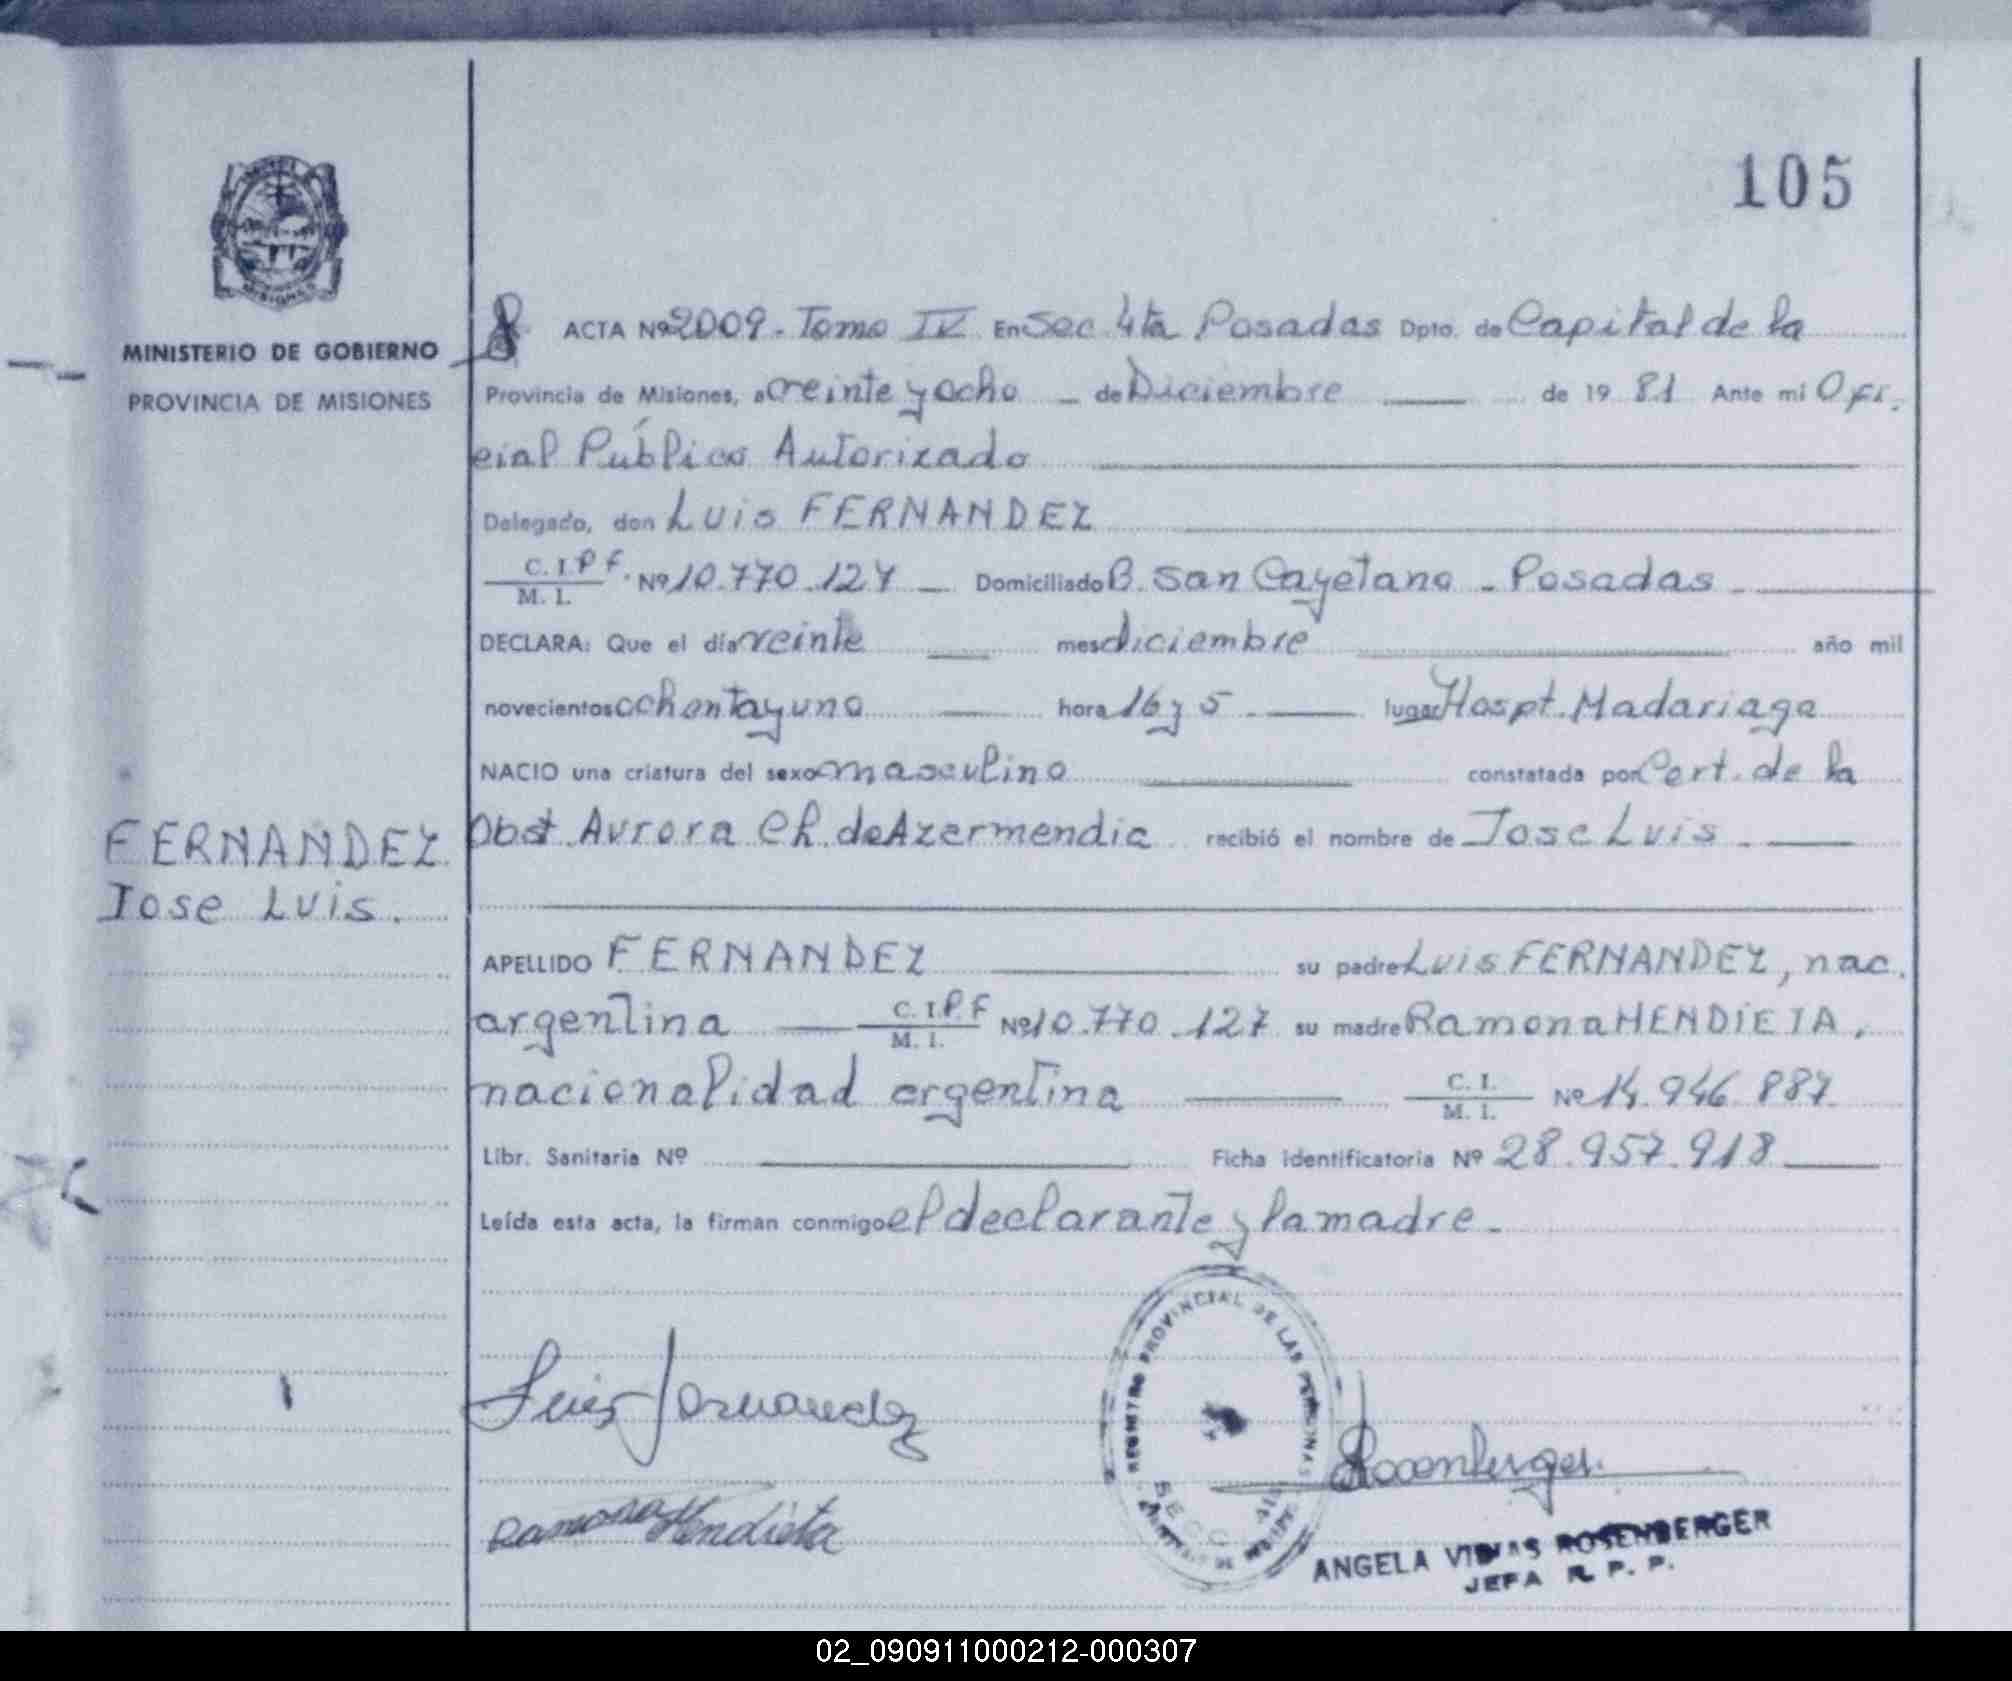 105
MISIONES
MINISTERIO DE GOBIERNO
PROVINCIA DE MISIONES
FERNANDEZ
Jose Luis.
ACTA Nº 2009 - Tomo IV En Sec. 4ta Posadas Dpto. de Capital de la
Provincia de Misiones, a veinte y ocho de Diciembre de 19 81 Ante mi Ofi.
cial Público Autorizado
Delegado, don Luis FERNANDEZ
C. I. P f. Nº 10.770.127 Domiciliado B. San Cayetano - Posadas
M. I.
DECLARA: Que el día veinte mes diciembre año mil
novecientos ochenta y uno hora 16 y 5 lugar Hospt. Madariaga
NACIO una criatura del sexo masculino constatada por Cert. de la
Obst. Aurora Ch. de Azermendia recibió el nombre de Jose Luis
APELLIDO FERNANDEZ su padre Luis FERNANDEZ, nac.
argentina C. I. P F Nº 10.770.127 su madre Ramona MENDIETA,
M. I.
nacionalidad argentina C. I. Nº 14.946.887
M. I.
Libr. Sanitaria Nº Ficha identificatoria Nº 28.957.918
Leída esta acta, la firman conmigo el declarante y la madre.
Luis Fernandez
REGISTRO PROVINCIAL DE LAS PERSONAS
SECC. 4ta
Rosenberger
Ramona Mendieta
ANGELA VIVIAS ROSENBERGER
JEFA R. P. P.
02_090911000212-000307